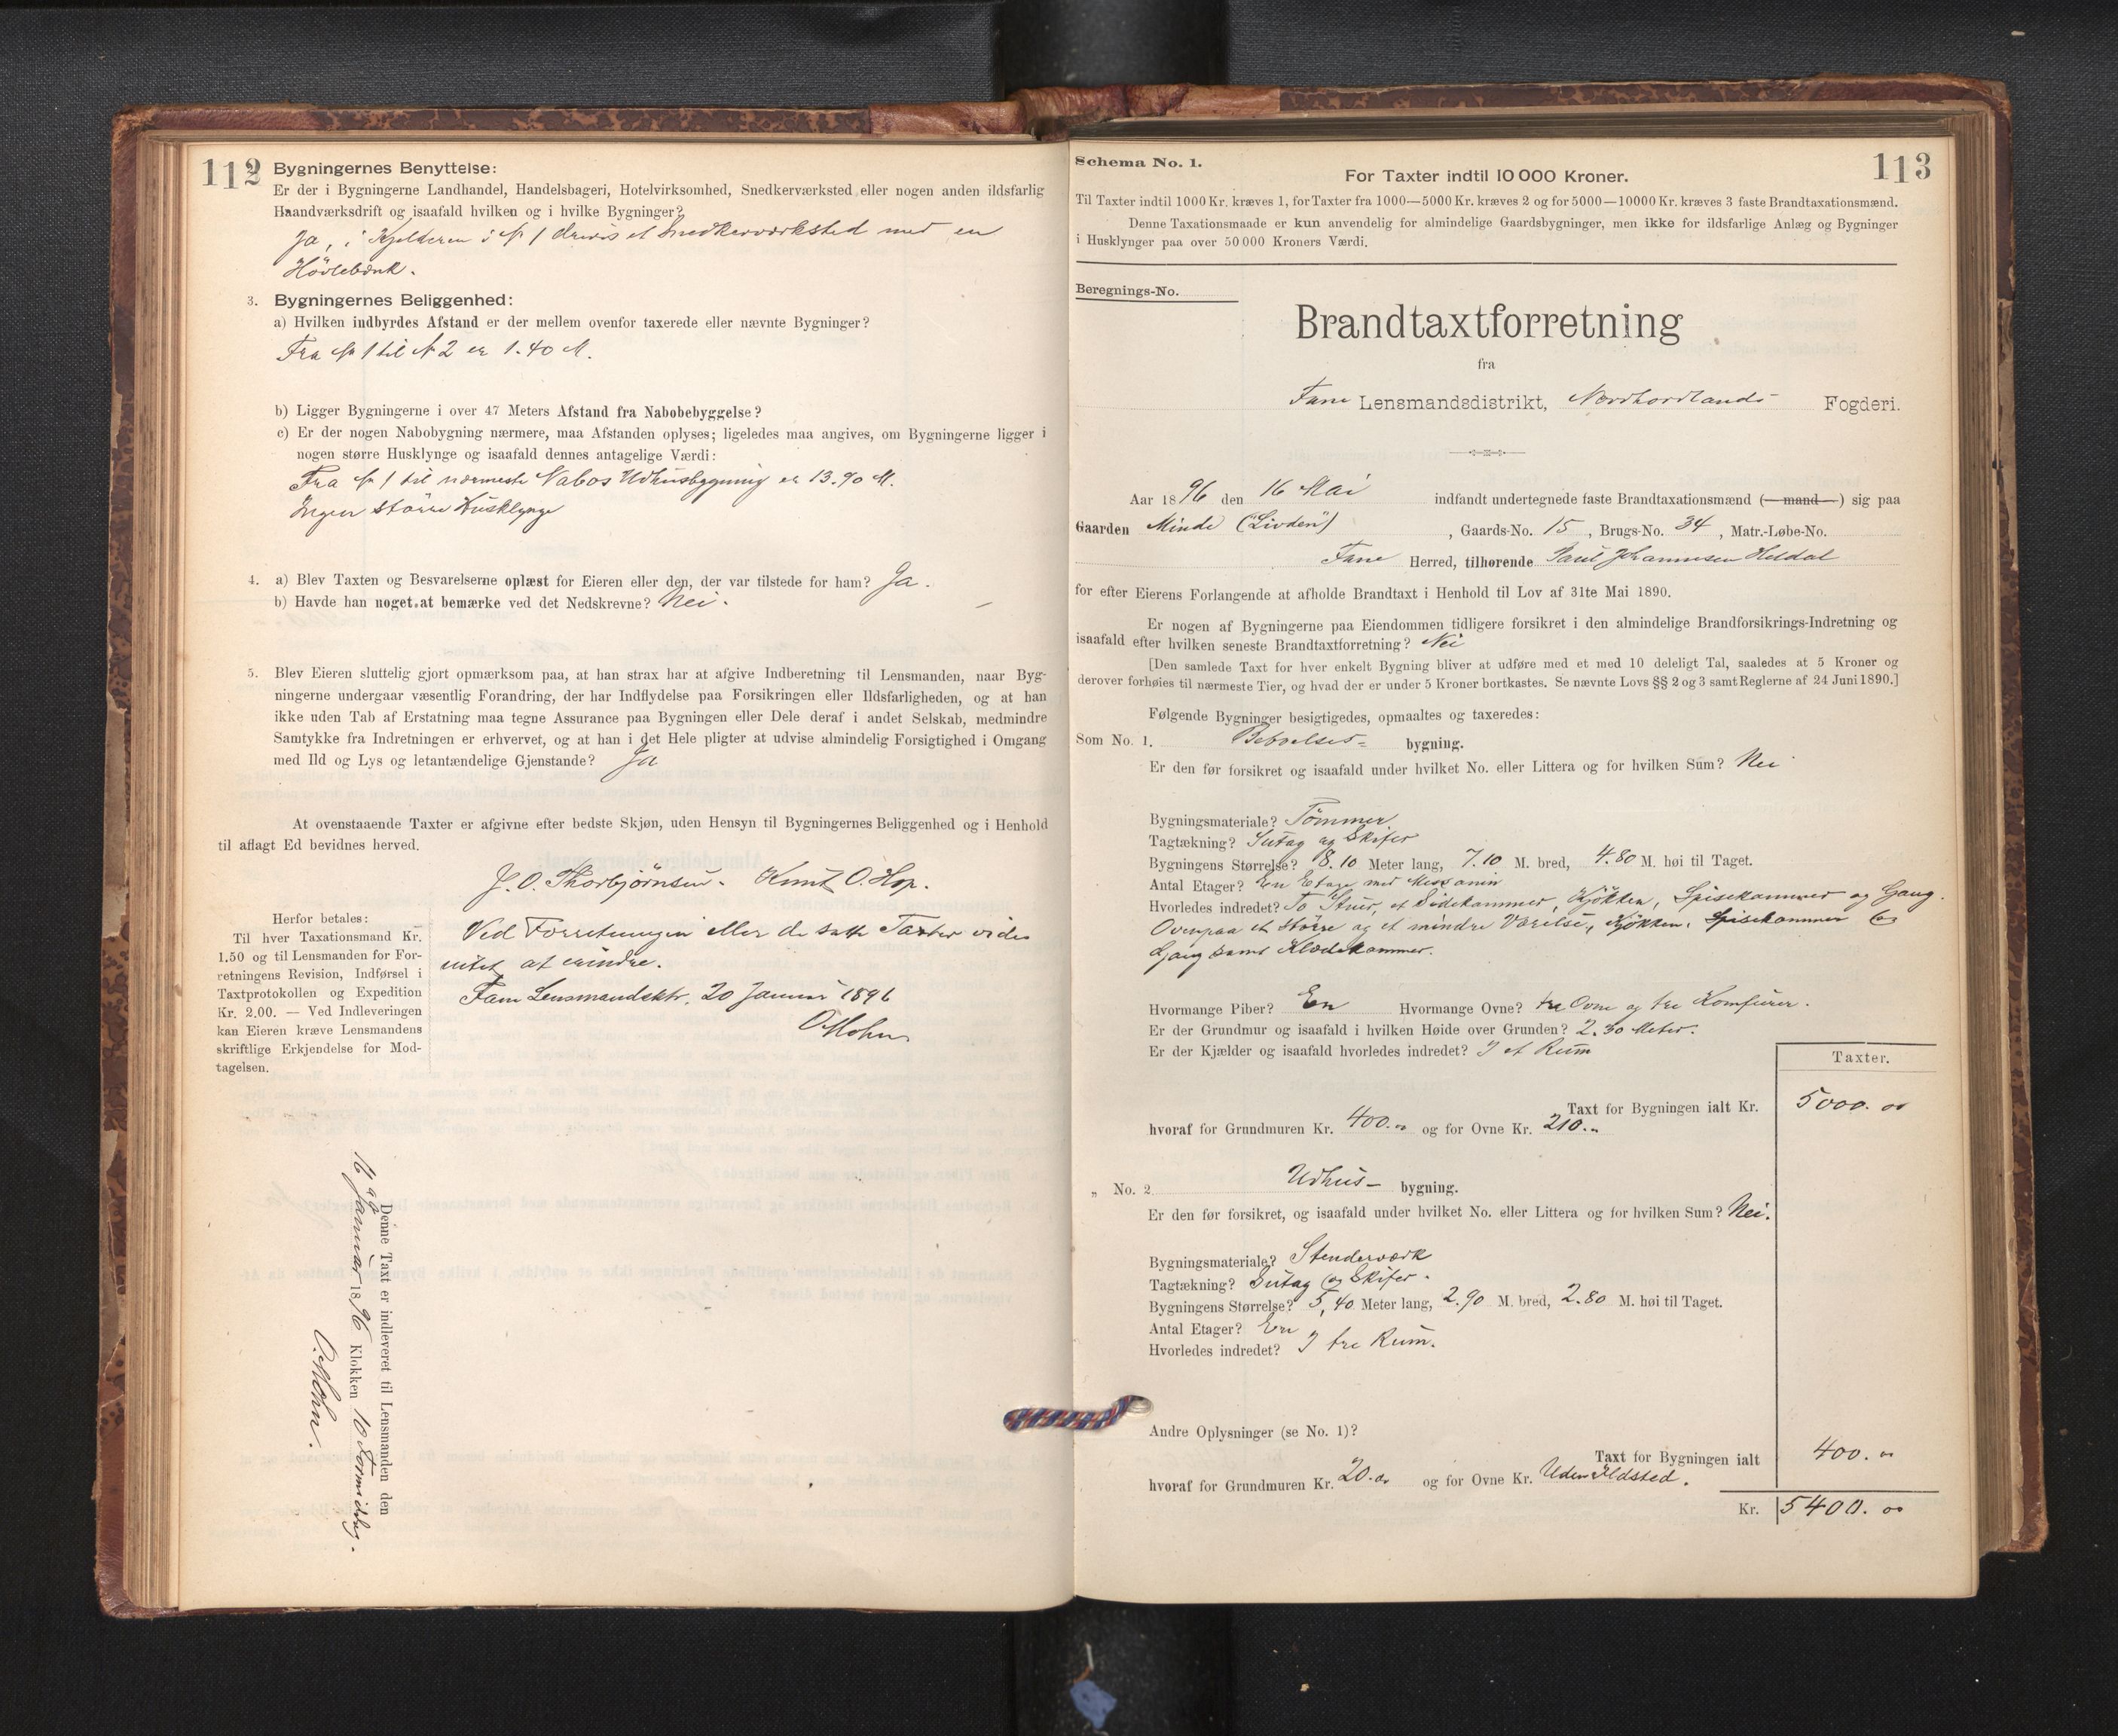 112
Bygningernes Benyttelse:
Er der i Bygningerne Landhandel, Handelsbageri, Hotelvirksomhed, Snedkerværksted eller nogen anden ildsfarlig
Haandværksdrift og isaafald hvilken og i hvilke Bygninger?
Ja, i Kjelderen i № 1 drives et Snedkerværksted med en
Høvlebænk.
3. Bygningernes Beliggenhed:
a) Hvilken indbyrdes Afstand er der mellem ovenfor taxerede eller nævnte Bygninger?
Fra № 1 til № 2 er 1.40 M.
b) Ligger Bygningerne i over 47 Meters Afstand fra Nabobebyggelse?
c) Er der nogen Nabobygning nærmere, maa Afstanden oplyses; ligeledes maa angives, om Bygningerne ligger i
nogen større Husklynge og isaafald dennes antagelige Værdi:
Fra № 1 til nærmeste Nabos Udhusbygning er 13.90 M.
Ingen større Husklynge
4. a) Blev Taxten og Besvarelserne oplæst for Eieren eller den, der var tilstede for ham? Ja.
b) Havde han noget at bemærke ved det Nedskrevne? Nei.
5. Blev Eieren sluttelig gjort opmærksom paa, at han strax har at afgive Indberetning til Lensmanden, naar Byg-
ningerne undergaar væsentlig Forandring, der har Indflydelse paa Forsikringen eller Ildsfarligheden, og at han
ikke uden Tab af Erstatning maa tegne Assurance paa Bygningen eller Dele deraf i andet Selskab, medmindre
Samtykke fra Indretningen er erhvervet, og at han i det Hele pligter at udvise almindelig Forsigtighed i Omgang
med Ild og Lys og letantændelige Gjenstande? Ja
At ovenstaaende Taxter er afgivne efter bedste Skjøn, uden Hensyn til Bygningernes Beliggenhed og i Henhold
til aflagt Ed bevidnes herved.
J. O. Thorbjørnsen. Knut O. Hop.
Herfor betales:
Til hver Taxationsmand Kr.
1.50 og til Lensmanden for For-
retningens Revision, Indførsel i
Taxtprotokollen og Expedition
Kr. 2.00. — Ved Indleveringen
kan Eieren kræve Lensmandens
skriftlige Erkjendelse for Mod-
tagelsen.
Ved Forretningen eller de satte Taxter vides
intet at erindre.
Fane Lensmandsktr. 20 Januar 1896
O Mohn
Denne Taxt er indleveret til Lensmanden den
16 Januar 1896 Klokken 10 Formiddag.
O. Mohn.
Schema No. 1.
113
For Taxter indtil 10 000 Kroner.
Til Taxter indtil 1000 Kr. kræves 1, for Taxter fra 1000—5000 Kr. kræves 2 og for 5000—10000 Kr. kræves 3 faste Brandtaxationsmænd.
Denne Taxationsmaade er kun anvendelig for almindelige Gaardsbygninger, men ikke for ildsfarlige Anlæg og Bygninger
i Husklynger paa over 50 000 Kroners Værdi.
Beregnings-No.
Brandtaxtforretning
fra
Fane Lensmandsdistrikt, Nordhordlands Fogderi.
Aar 1896 den 16 Mai indfandt undertegnede faste Brandtaxationsmænd (mand) sig paa
Gaarden Minde ("Livden"), Gaards-No. 15, Brugs-No. 34, Matr.-Løbe-No.
Fane Herred, tilhørende Paul Johannesen Heldal
for efter Eierens Forlangende at afholde Brandtaxt i Henhold til Lov af 31te Mai 1890.
Er nogen af Bygningerne paa Eiendommen tidligere forsikret i den almindelige Brandforsikrings-Indretning og
isaafald efter hvilken seneste Brandtaxtforretning? Nei
[Den samlede Taxt for hver enkelt Bygning bliver at udføre med et med 10 deleligt Tal, saaledes at 5 Kroner og
derover forhøies til nærmeste Tier, og hvad der er under 5 Kroner bortkastes. Se nævnte Lovs §§ 2 og 3 samt Reglerne af 24 Juni 1890.]
Følgende Bygninger besigtigedes, opmaaltes og taxeredes:
Som No. 1. Beboelses- bygning.
Er den før forsikret og isaafald under hvilket No. eller Littera og for hvilken Sum? Nei
Bygningsmateriale? Tømmer
Tagtækning? Sutag og Skifer
Bygningens Størrelse? 8.10 Meter lang, 7.10 M. bred, 4.80 M. høi til Taget.
Antal Etager? En Etage med Messanin
Hvorledes indredet? To Stuer, et Sidekammer, Kjøkken, Spisekammer og Gang.
Ovenpaa et større og et mindre Værelse, Kjøkken, Spisekammer og
Gang samt Klædekammer.
Hvormange Piber? En Hvormange Ovne? tre Ovne og tre Komfurer.
Er der Grundmur og isaafald i hvilken Høide over Grunden? 2.30 Meter.
Er der Kjælder og isaafald hvorledes indredet? I et Rum
Taxter.
Taxt for Bygningen ialt Kr. 5000. 00
hvoraf for Grundmuren Kr. 400.00 og for Ovne Kr. 210.-
„ No. 2 Udhus- bygning.
Er den før forsikret, og isaafald under hvilket No. eller Littera og for hvilken Sum? Nei.
Bygningsmateriale? Stenderværk
Tagtækning? Sutag og Skifer.
Bygningens Størrelse? 5,40 Meter lang, 2.90 M. bred, 2.80 M. høi til Taget.
Antal Etager? En
Hvorledes indredet? I tre Rum.
Andre Oplysninger (se No. 1)?
Taxt for Bygningen ialt 400. 00
hvoraf for Grundmuren Kr. 20.00 og for Ovne Kr. Uden Ildsted.
Kr. 5400. 00